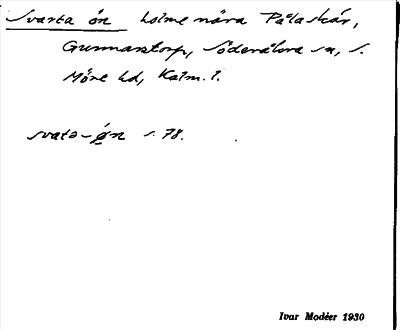 Svarta ön holme nära Påla skär,
Gunnarstorp, Söderåkra sn, S.
Möre hd, Kalm. l.
svata-øn s. 78.
Ivar Modéer 1930